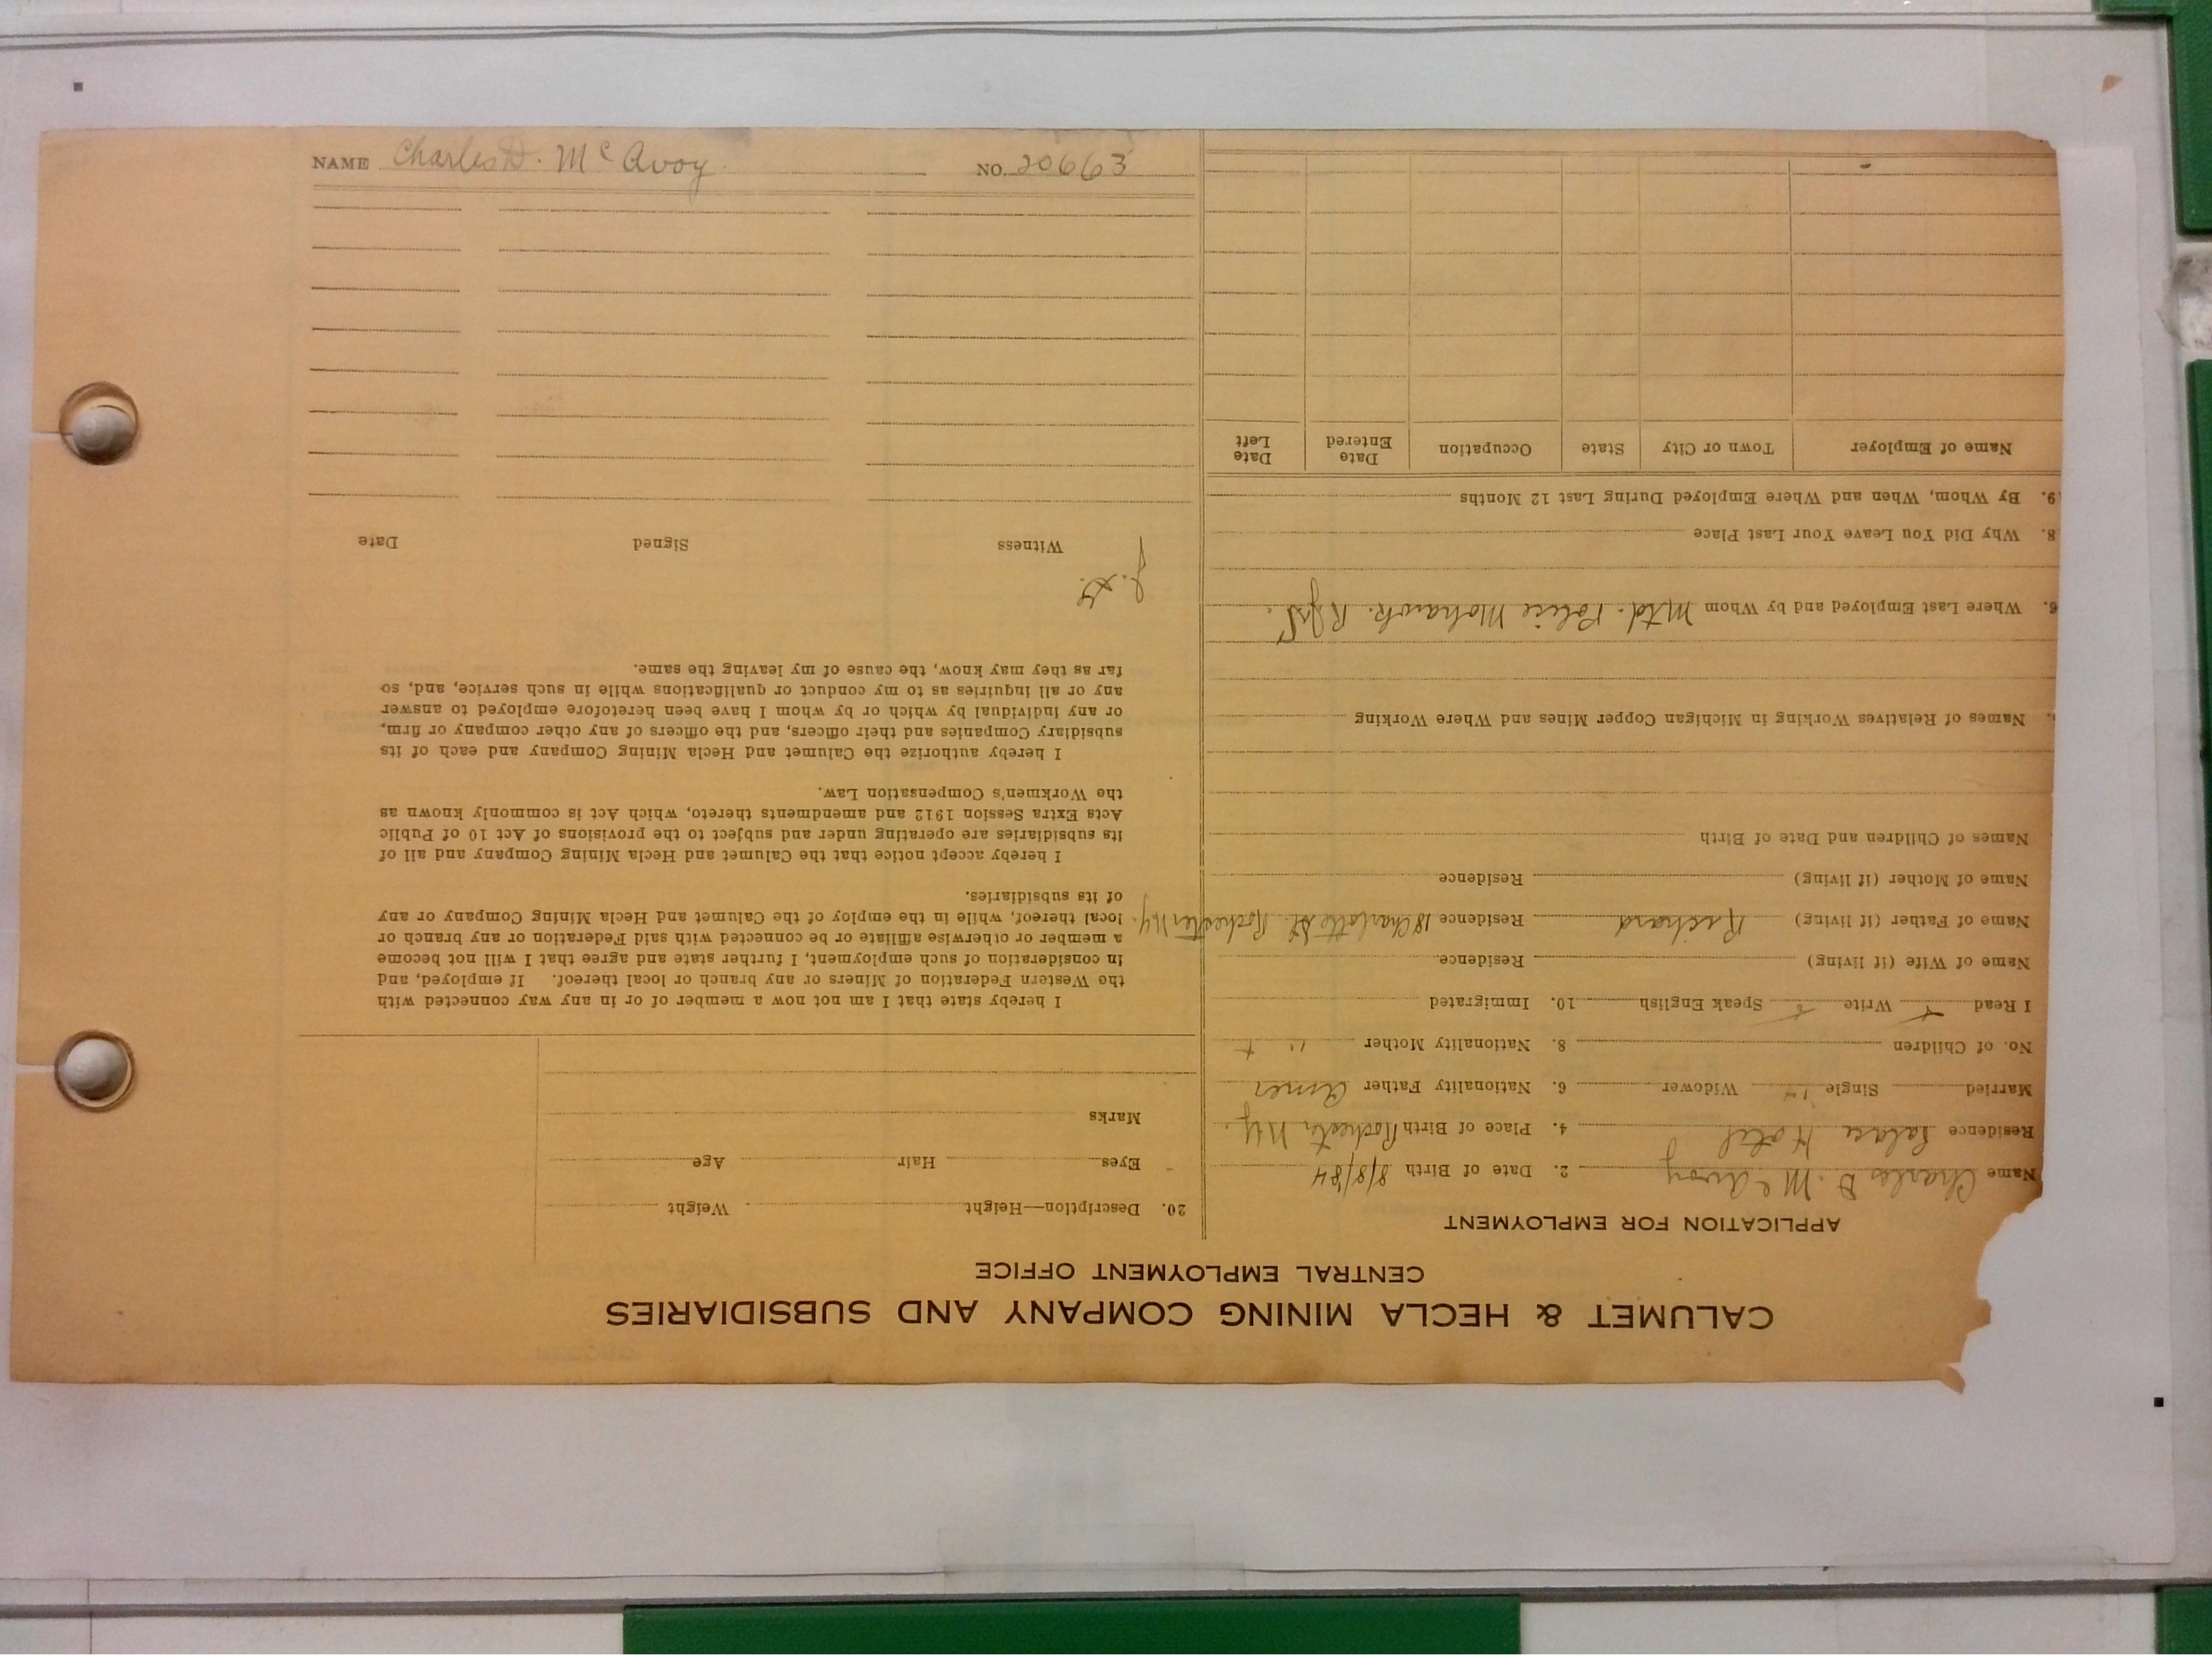 CALUMET & HECLA MINING COMPANY AND SUBSIDIARIES
CENTRAL EMPLOYMENT OFFICE
APPLICATION FOR EMPLOYMENT
Name Charles D. Mc Avoy 2. Date of Birth 8/8/84
Residence Palace Hotel 4. Place of Birth Rochester N.Y.
Married Single Widower 6. Nationality Father Amer
No. of Children 8. Nationality Mother "
I Read Write Speak English 10. Immigrated
Name of Wife (if living) Residence
Name of Father (if living) Richard Residence 18 Charlotte St. Rochester N.Y.
Name of Mother (if living) Residence
Names of Children and Date of Birth
Names of Relatives Working in Michigan Copper Mines and Where Working
6. Where Last Employed and by Whom Mtd. Police Mohawk.
8. Why Did You Leave Your Last Place
9. By Whom, When and Where Employed During Last 12 Months
Name of Employer Town or City State Occupation Date Entered Date Left
20. Description—Height Weight
Eyes Hair Age
Marks
I hereby state that I am not now a member of or in any way connected with
the Western Federation of Miners or any branch or local thereof. If employed, and
in consideration of such employment, I further state and agree that I will not become
a member or otherwise affiliate or be connected with said Federation or any branch or
local thereof, while in the employ of the Calumet and Hecla Mining Company or any
of its subsidiaries.
I hereby accept notice that the Calumet and Hecla Mining Company and all of
its subsidiaries are operating under and subject to the provisions of Act 10 of Public
Acts Extra Session 1912 and amendments thereto, which Act is commonly known as
the Workmen's Compensation Law.
I hereby authorize the Calumet and Hecla Mining Company and each of its
subsidiary Companies and their officers, and the officers of any other company or firm,
or any individual by which or by whom I have been heretofore employed to answer
any or all inquiries as to my conduct or qualifications while in such service, and, so
far as they may know, the cause of my leaving the same.
Witness Signed Date
NAME Charles D. Mc Avoy NO. 20663